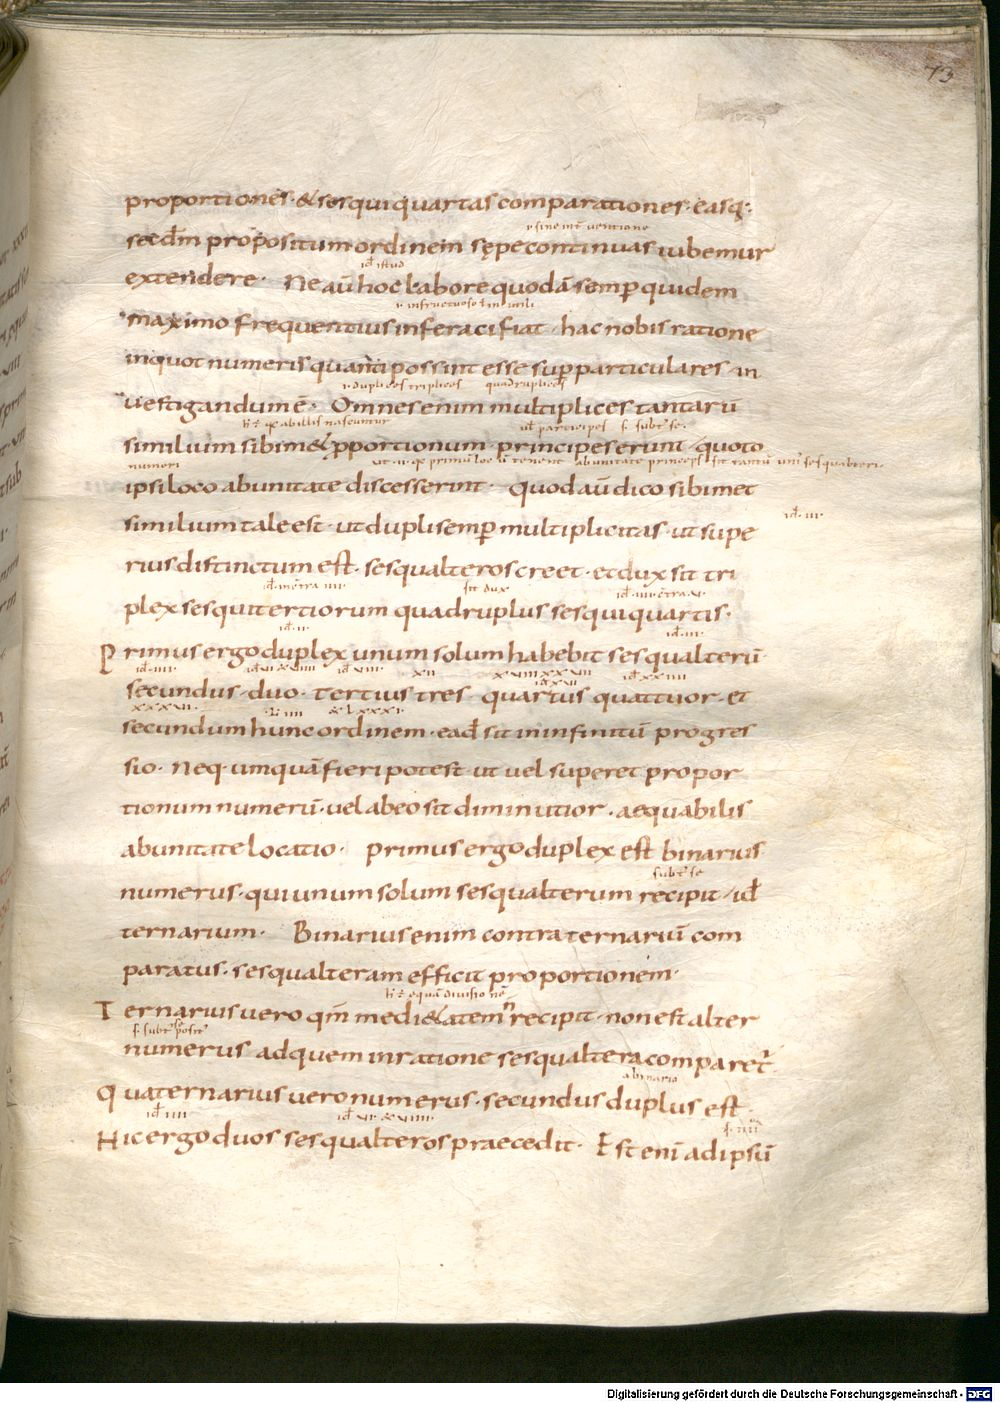 73
proportiones · & sesquiquartas comparationes · easq;
secdm propositum ordinem sępe continuas iubemur
extendere · Ne aū hoc labore quodā semp quidem
maximo frequentius inferaci fiat · hac nobis ratione
inquot numeris quanti possint esse supparticulares · in
uestigandum ē · Omnes enim multiplices tantarū
v duplices triplices quadruplices
similium sibim& pportionum · principes erunt · quoto
numeri
ipsi loco abunitate discesserint · Quod aū dico sibimet
similium tale est · ut dupli semp multiplicitas · ut supe
rius distinctum est · sesqualteros creet · et dux sit tri
sit dux
plex sesquitertiorum quadruplus sesquiquartis ·
Primus ergo duplex unum solum habebit sesqualterū ·
secundus · duo · tertius tres · quartus quattuor · et
secundum hunc ordinem · eadē sit in infinitū progres
sio · Neq· umquā fieri potest ut uel superet propor
tionum numerū · uel abeo sit diminutior · aequabilis
abunitate locatio · primus ergo duplex est binarius
numerus · qui unum solum sesqualterum recipit · id
ternarium · Binarius enim contra ternariū com
paratus · sesqualteram efficit proportionem ·
Ternarius uero qm medi&atem n recipit · non est alter
numerus adquem inratione sesqualtera comparet
abinario
Quaternarius uero numerus · secundus duplus est ·
id iiii id vi & viiii
Hic ergo duos sesqualteros praecedit · Est eni adipsū
Digitalisierung gefördert durch die Deutsche Forschungsgemeinschaft - DFG